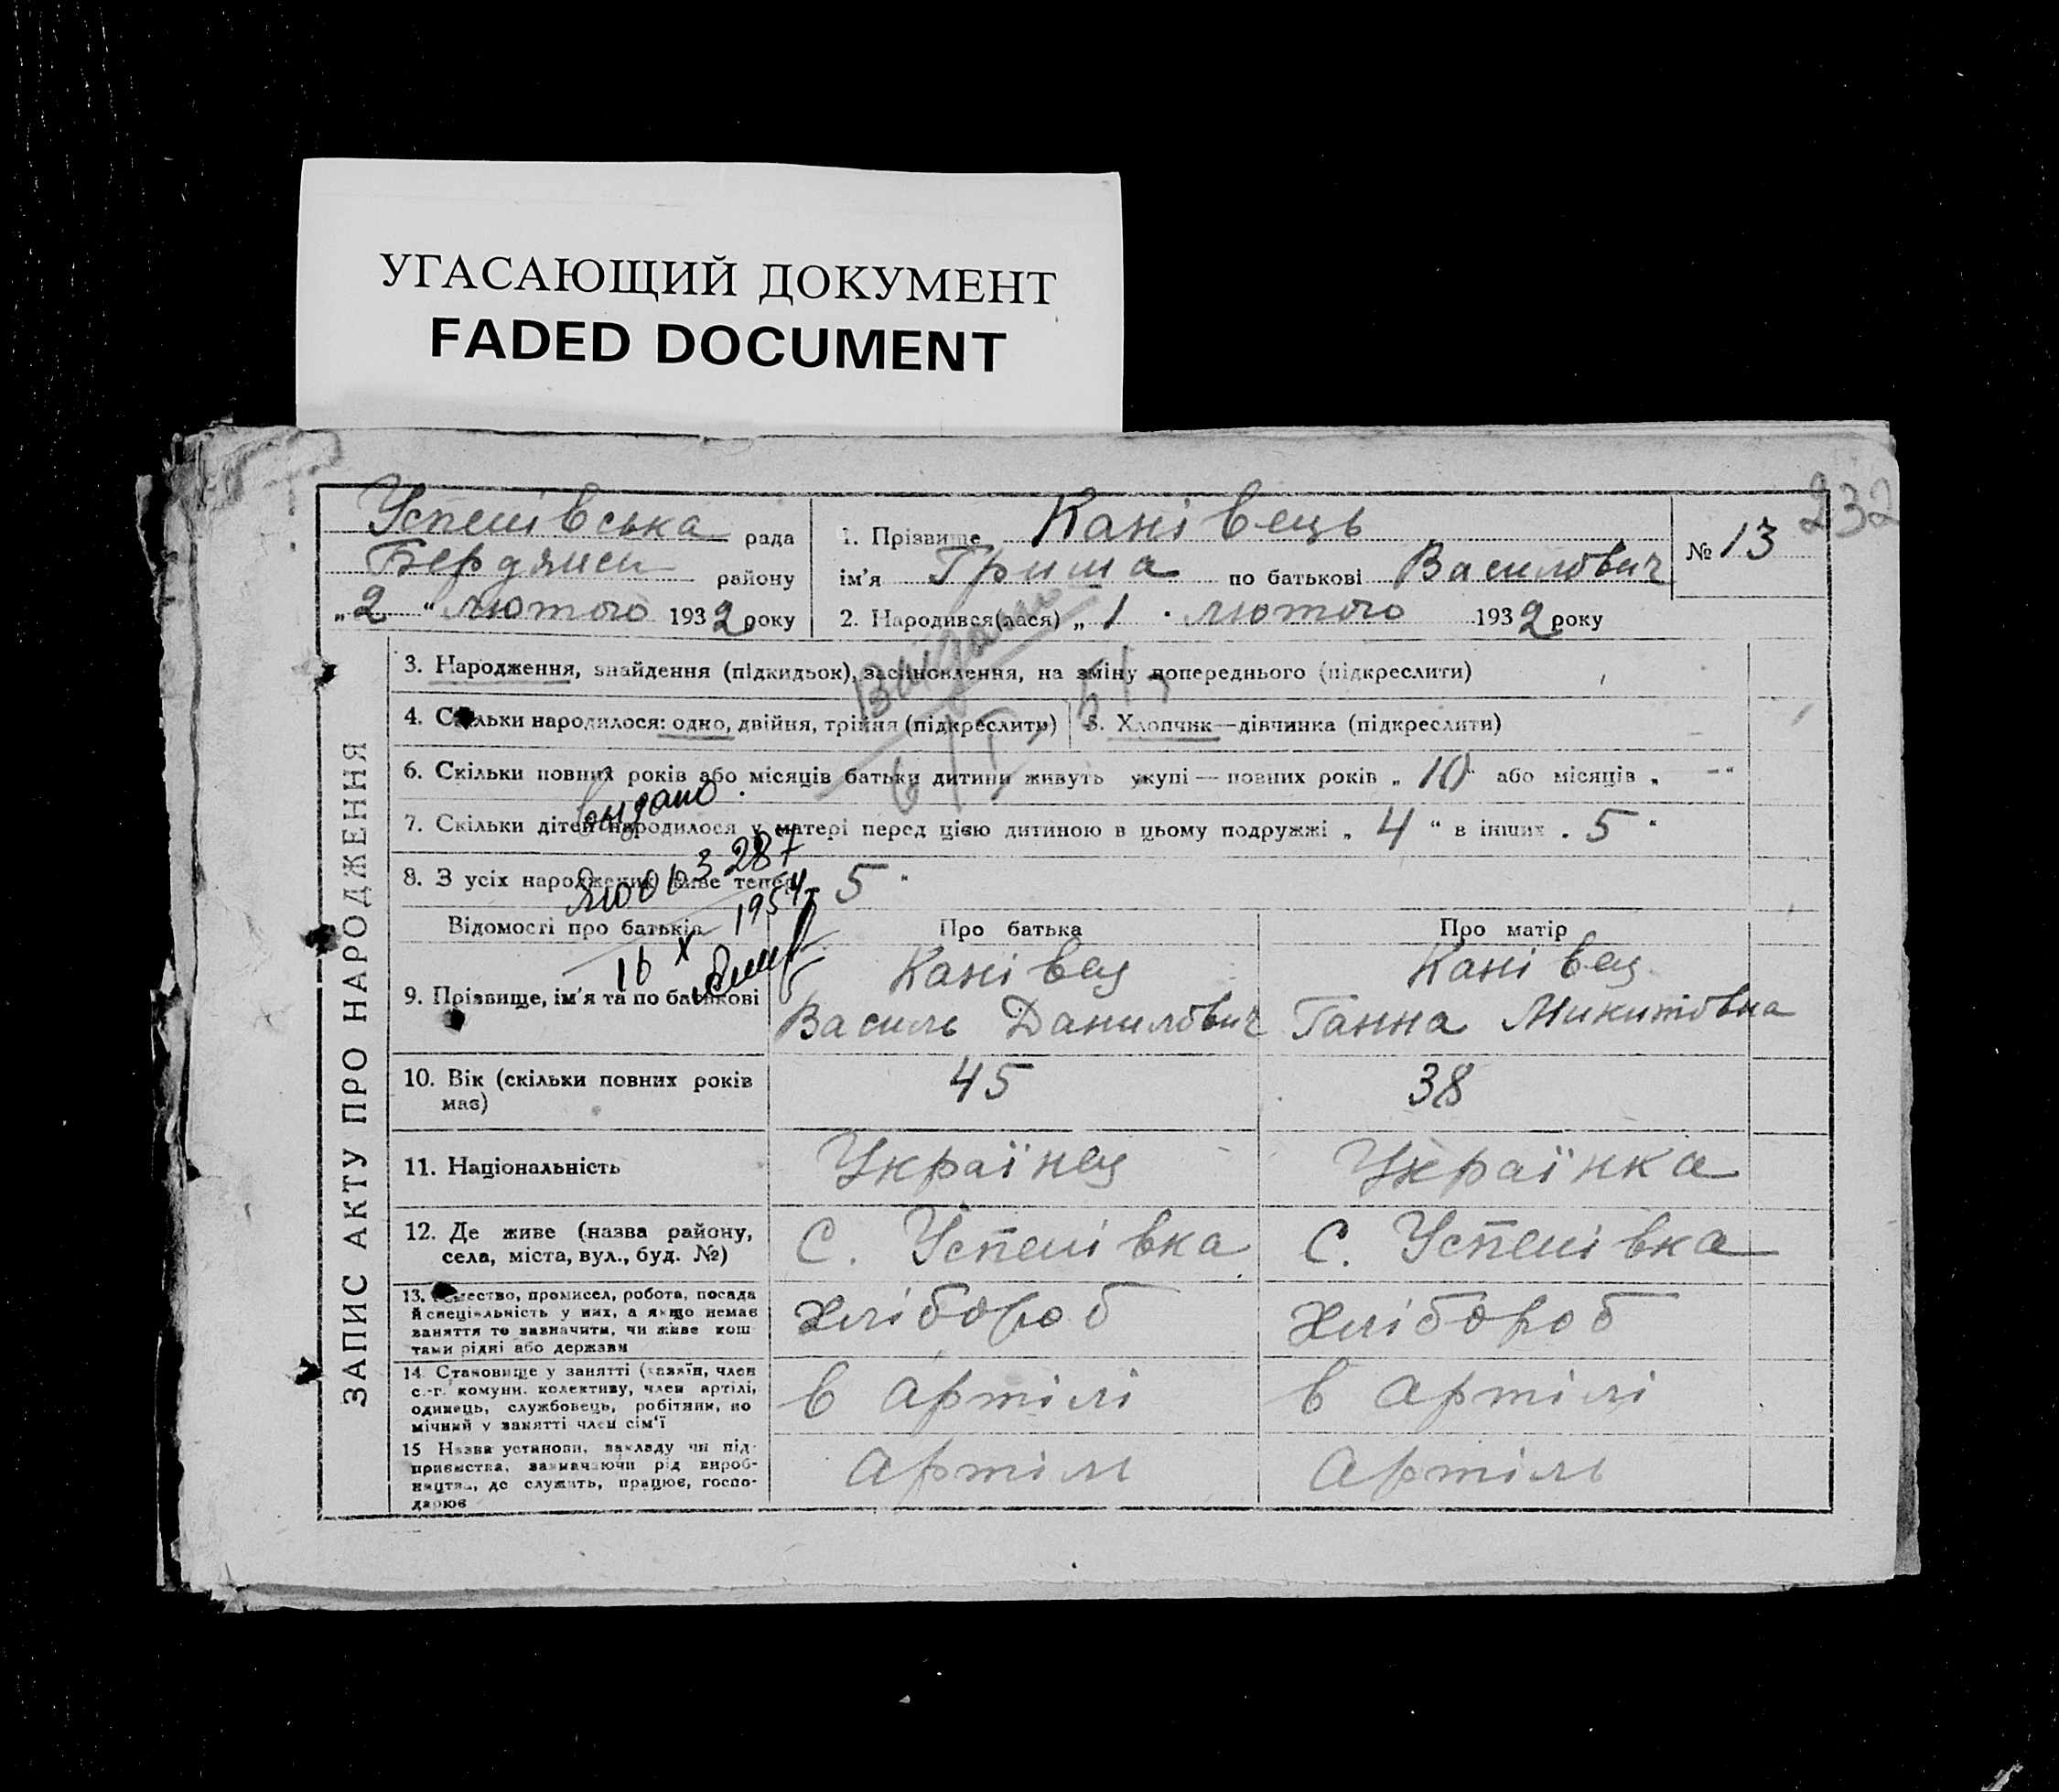 УГАСАЮЩИЙ ДОКУМЕНТ
FADED DOCUMENT
232
Успенівська рада
Бердянськ району
„2“ лютого 1932 року
1. Прізвище Канівець
ім'я Гриша по батькові Василович
№ 13
2. Народився(лася) „1. лютого 1932 року
ЗАПИС АКТУ ПРО НАРОДЖЕННЯ
3. Народження, знайдення (підкидьок), засиновлення, на зміну попереднього (підкреслити)
4. Скільки народилося: одно, двійня, трійня (підкреслити)
5. Хлопчик—дівчинка (підкреслити)
6. Скільки повних років або місяців батьки дитини живуть укупі — повних років „10“ або місяців „ —“
7. Скільки дітей народилося у матері перед цією дитиною в цьому подружжі „4“ в інших „5“
8. З усіх народжених живе тепер 5
выдано
287
16 X 1954
Відомості про батьків
Про батька
Про матір
9. Прізвище, ім'я та по батькові
Канівец
Василь Данилович
Канівец
Ганна Микитовна
10. Вік (скільки повних років
має)
45
38
11. Національність
Українец
Українка
12. Де живе (назва району,
села, міста, вул., буд. №)
С. Успенівка
С. Успенівка
13. ремество, промисел, робота, посада
й спеціяльність у них, а якщо немає
заняття то зазначити, чи живе кош
тами рідні або держави
Хлібороб
Хлібороб
14. Становище у занятті (хазяїн, член
с.-г. комуни, колективу, член артілі,
одинець, службовець, робітник, по
мічний у занятті член сім'ї
в артілі
в артілі
15 Назва установи, закладу чи під-
приємства, зазначаючи рід вироб-
ництва, де служить, працює, госпо-
дарює
Артіль
Артіль